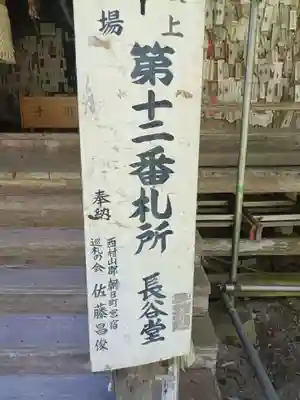 上
場
第十二番札所
長谷堂
奉納
西村山郡朝日町宮宿
巡礼の会
佐藤昌俊